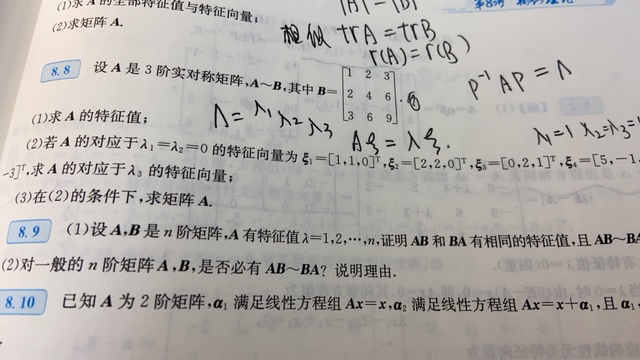 (1)求 A 的全部特征值与特征向量;
(2)求矩阵 A.
|A| = |B|
相似 trA = trB
r(A) = r(B)
8.8 设 A 是 3 阶实对称矩阵,A~B,其中 B=
1 2 3
2 4 6
3 6 9
P⁻¹AP = Λ
(1)求 A 的特征值;
Λ = λ₁ λ₂ λ₃
Aξ = λξ.
(2)若 A 的对应于 λ₁=λ₂=0 的特征向量为 ξ₁=[1,1,0]ᵀ,ξ₂=[2,2,0]ᵀ,ξ₃=[0,2,1]ᵀ,ξ₄=[5,-1,
-3]ᵀ,求 A 的对应于 λ₃ 的特征向量;
(3)在(2)的条件下,求矩阵 A.
8.9 (1)设 A,B 是 n 阶矩阵,A 有特征值 λ=1,2,…,n,证明 AB 和 BA 有相同的特征值,且 AB~BA
(2)对一般的 n 阶矩阵 A,B,是否必有 AB~BA? 说明理由.
8.10 已知 A 为 2 阶矩阵,α₁ 满足线性方程组 Ax=x,α₂ 满足线性方程组 Ax=x+α₁,且 α₁